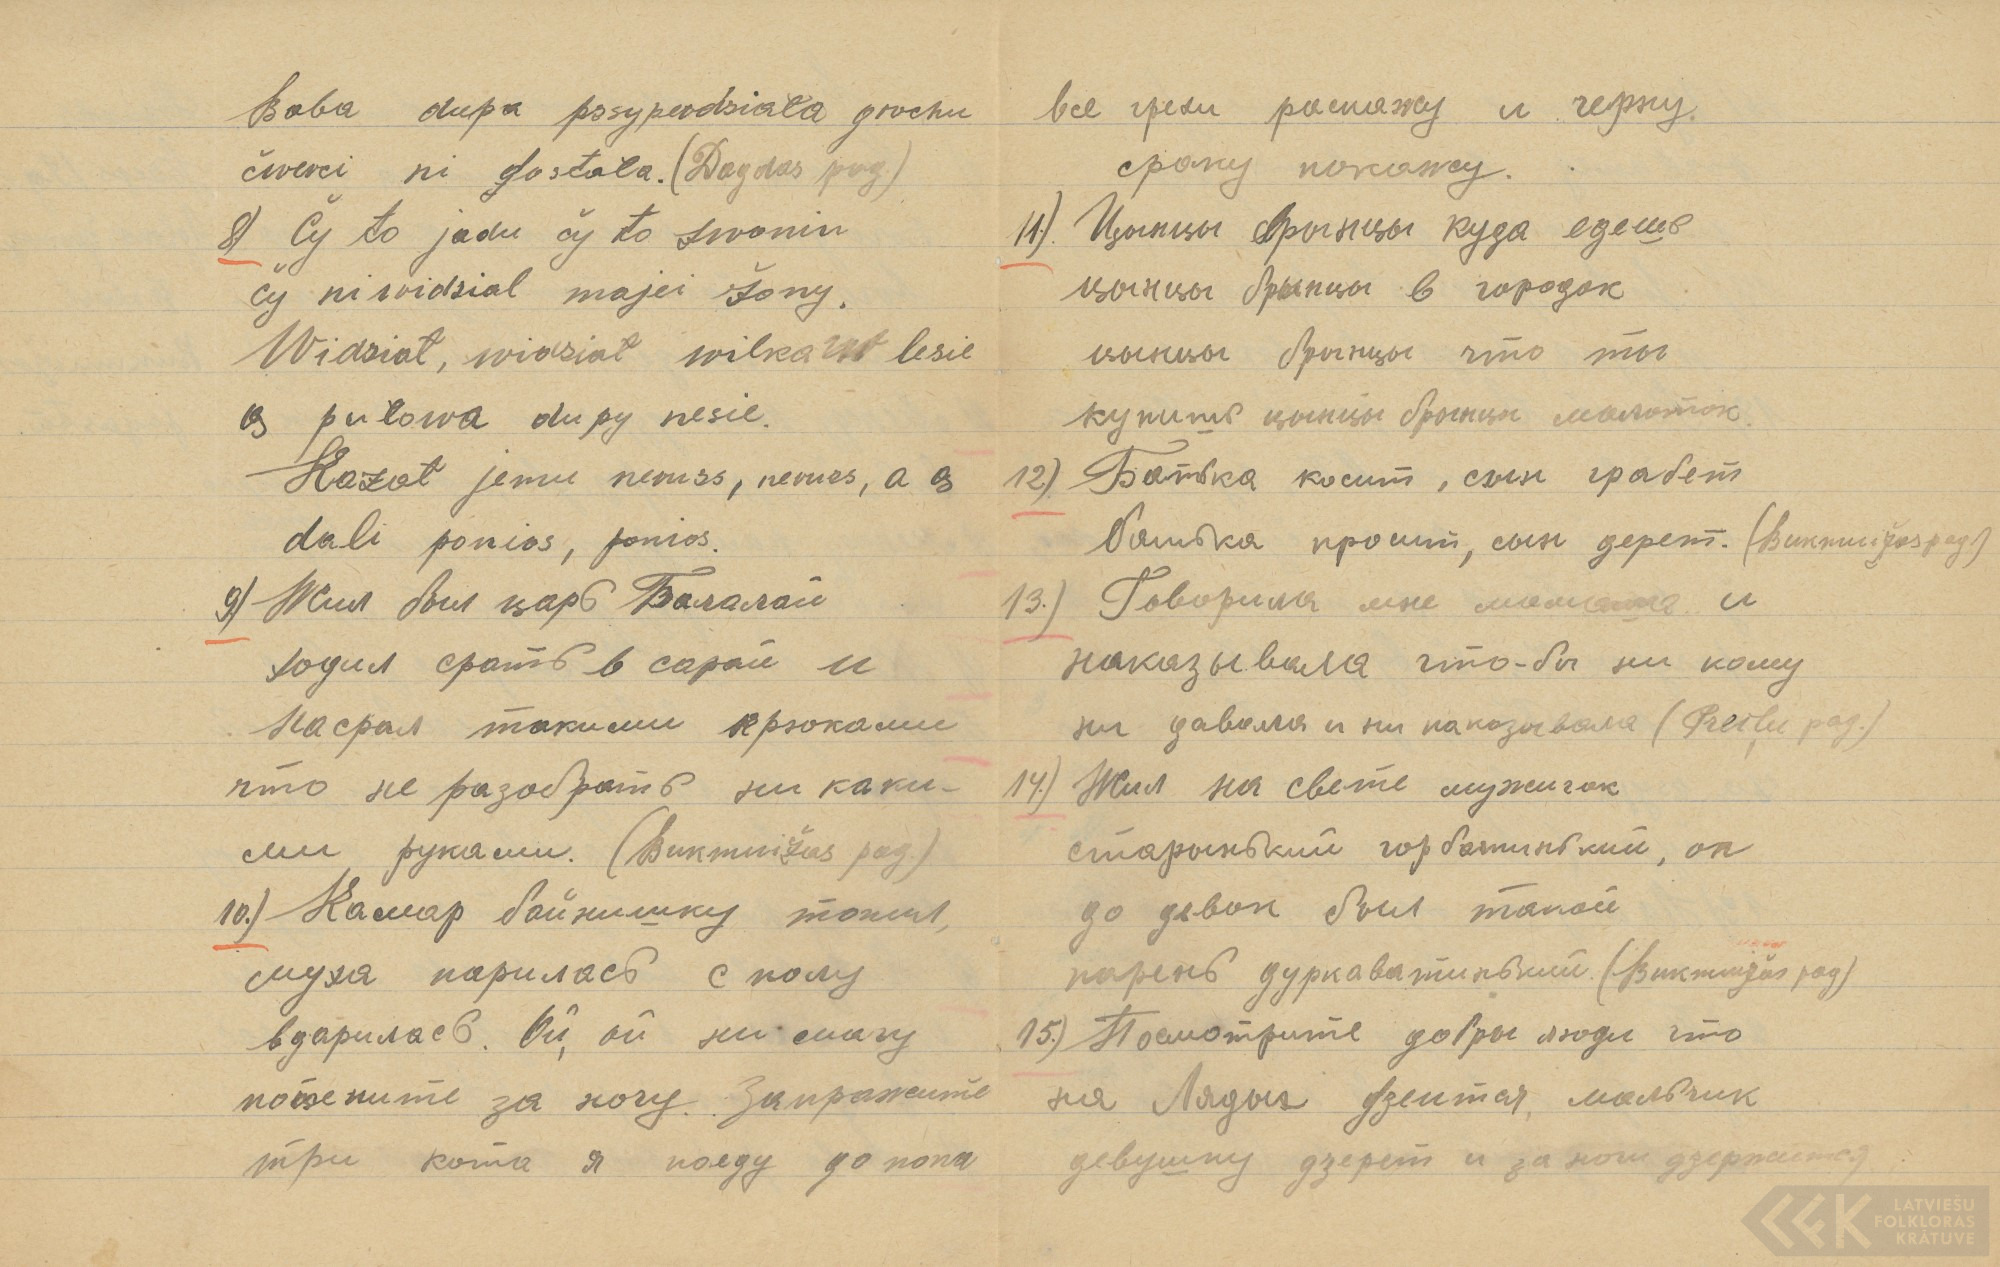 Baba dupa pssypendsiała grochu
čwerci ni dostała. (Dagdas pag.)
8) Čy to jadu čy to zwonin
čy ni widsial majei žony.
Widsiat, widsiat wilka w lesie
os putowa dupy nesie.
Kazat jemu neruss, neruss, a os
dali ponios, ponios.
9) Жил был царь Балалай
ходил срать в сарай и
насрал такими крюками
что не разобрать ни каки-
ми руками. (Викmuižas pag.)
10.) Камар байнишку топил,
муха парилась с полу
вдарилась. Ой, ой ни магу
патените за ногу. Запражите
три кота я поеду до попа
все грехи раскажу и черну
сраку покажу.
11.) Цынцы брынцы куда едешь
цынцы брынцы в городок
цынцы брынцы что ты
купишь цынцы брынцы молоток.
12) Батька косит, сын грабет
батька просит, сын дерет. (Викmuižas pag.)
13.) Говорила мне мамаша и
наказывала что-бы ни кому
ни давала и ни паказывала (Preiļu pag.)
14.) Жил на свете мужичок
старынький горбатинький, он
до девок был такой
парень дуркаватинький. (Викmuižas pag)
15.) Посмотрите добры люди что
на Лядых дзеится, мальчик
девушку дзерет и за ноги дзержится
LATVIEŠU
FOLKLORAS
KRĀTUVE